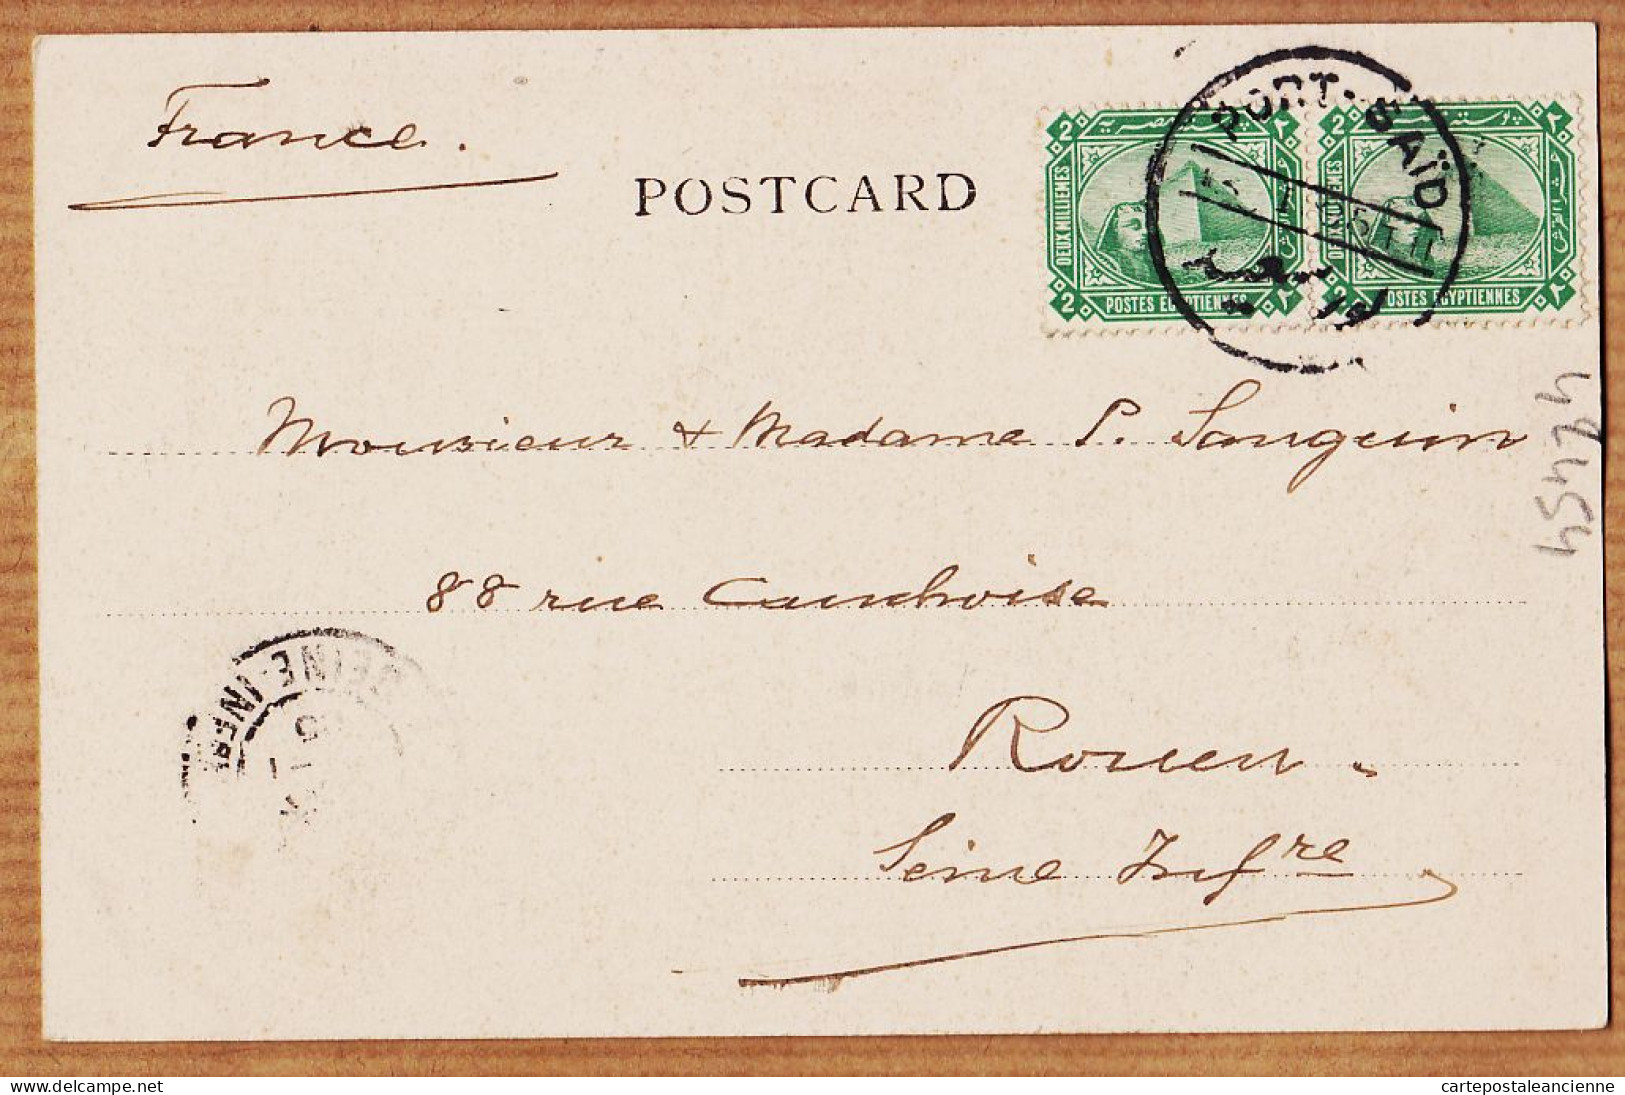 France.
POSTCARD
PORT-SAÏD
2 2
DEUX MILLIEMES
POSTES EGYPTIENNES
2
2
DEUX MILLIEMES
POSTES EGYPTIENNES
Monsieur & Madame P. Sanguin
88 rue Cauchoise
Rouen.
Seine Infre
SEINE-INFRE
45424
cartepostaleancienne